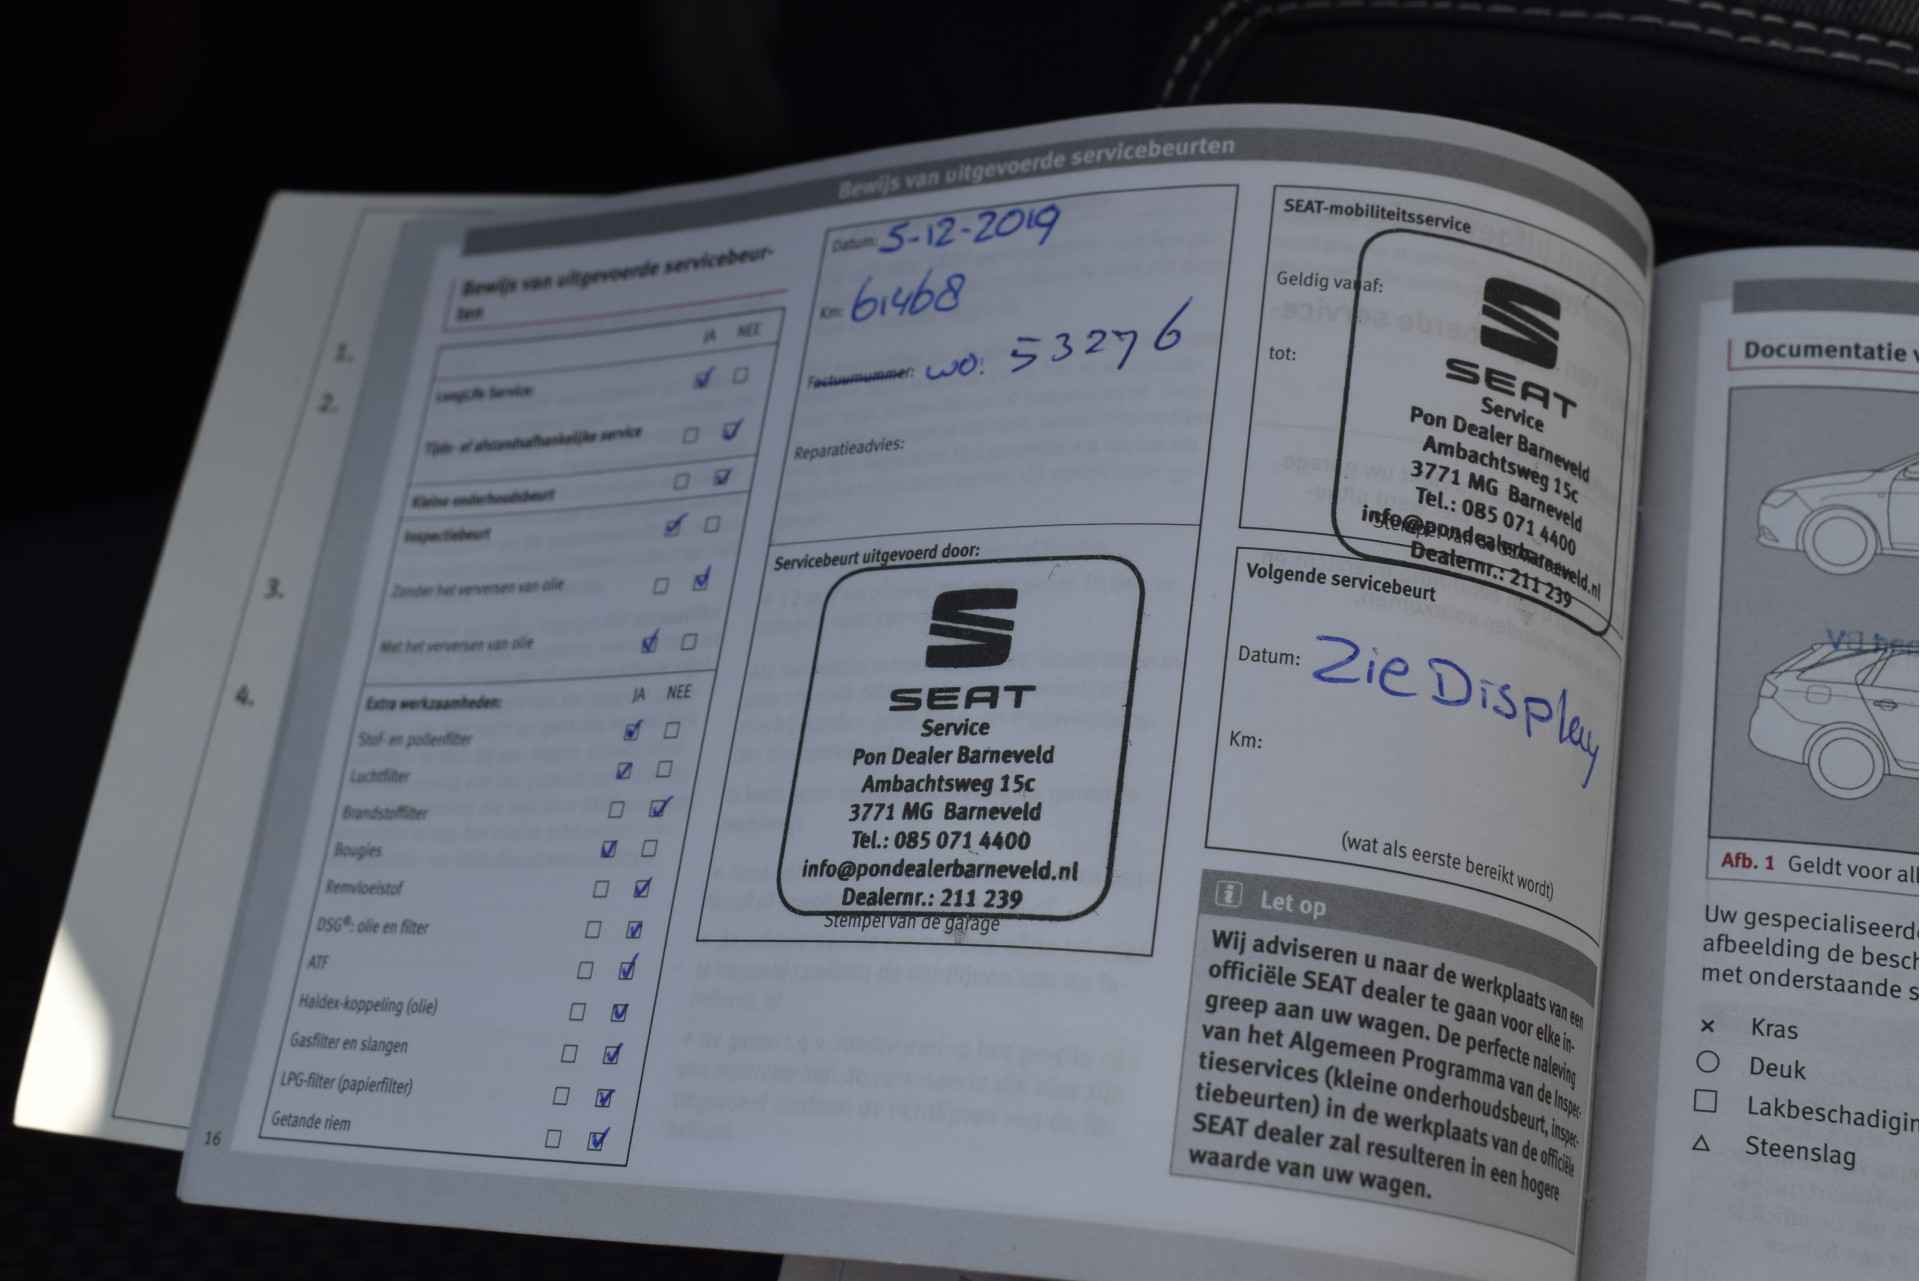 Bewijs van uitgevoerde servicebeurten
1.
2.
3.
4.
Bewijs van uitgevoerde servicebeur-
ten
JA NEE
LongLife Service:
Tijds- of afstandsafhankelijke service
Kleine onderhoudsbeurt
Inspectiebeurt
Zonder het verversen van olie
Met het verversen van olie
Extra werkzaamheden: JA NEE
Stof- en pollenfilter
Luchtfilter
Brandstoffilter
Bougies
Remvloeistof
DSG®: olie en filter
ATF
Haldex-koppeling (olie)
Gasfilter en slangen
LPG-filter (papierfilter)
Getande riem
16
Datum: 5-12-2019
Km: 61468
Factuurnummer: WO: 53276
Reparatieadvies:
Servicebeurt uitgevoerd door:
SEAT
Service
Pon Dealer Barneveld
Ambachtsweg 15c
3771 MG Barneveld
Tel.: 085 071 4400
info@pondealerbarneveld.nl
Dealernr.: 211 239
Stempel van de garage
SEAT-mobiliteitsservice
Geldig vanaf:
tot:
SEAT
Service
Pon Dealer Barneveld
Ambachtsweg 15c
3771 MG Barneveld
Tel.: 085 071 4400
info@pondealerbarneveld.nl
Dealernr.: 211 239
Volgende servicebeurt
Datum: Zie Display
Km:
(wat als eerste bereikt wordt)
i Let op
Wij adviseren u naar de werkplaats van een
officiële SEAT dealer te gaan voor elke in-
greep aan uw wagen. De perfecte naleving
van het Algemeen Programma van de Inspec-
tieservices (kleine onderhoudsbeurt, inspec-
tiebeurten) in de werkplaats van de officiële
SEAT dealer zal resulteren in een hogere
waarde van uw wagen.
Documentatie
Afb. 1 Geldt voor
Uw
afbeelding de
met onderstaande
Kras
Deuk
Steenslag